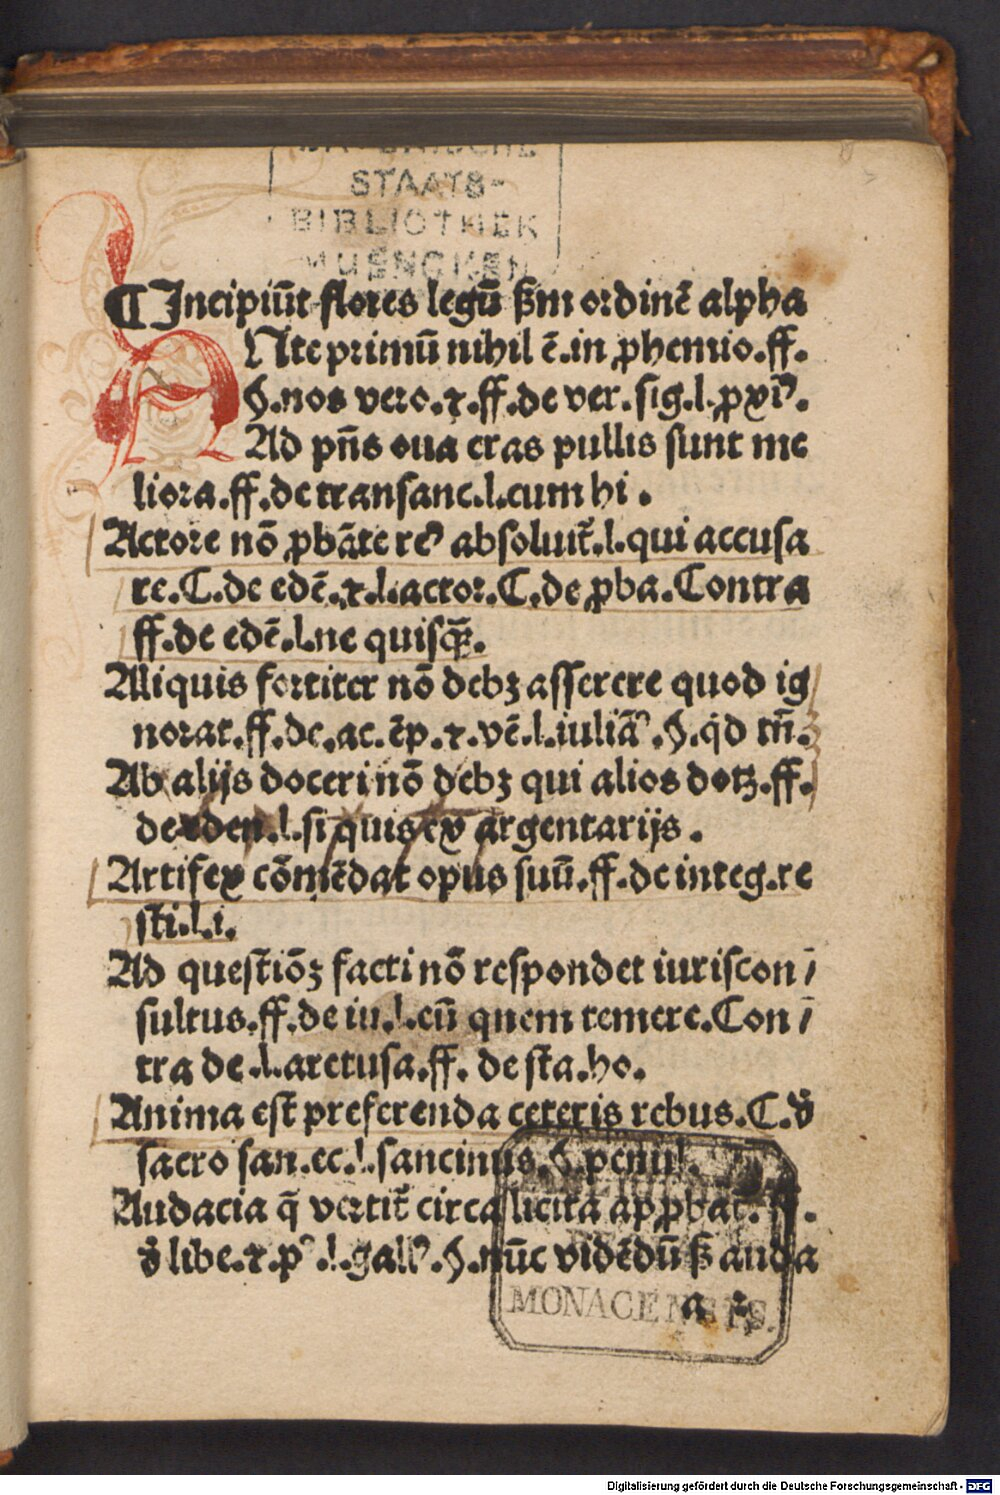 BAYERISCHE
STAATS-
BIBLIOTHEK
MUENCHEN
¶ Incipiūt flores legū ẜm ordinē alpha
ANte primū nihil ē.in ꝓhemio.ff.
§.nos vero.⁊.ff.de ver.sig.l.ꝓxiꝰ.
Ad pn̄s oua cras pullis sunt me
liora.ff.de transanc.l.cum hi.
Actore nō ꝓbāte reꝰ absoluit᷑.l.qui accusa
re.C.de edē.⁊.l.actor.C.de ꝓba.Contra
ff.de edē.l.ne quisq̄ꝫ.
Aliquis fortiter nō debꝫ asserere quod ig
norat.ff.de.ac.ēp.⁊.vē.l.iuliāꝰ.§.qd tn̄.
Ab alijs doceri nō debꝫ qui alios dotꝫ.ff.
de eden.l.si quis ex argentarijs.
Artifex cōmēdat opus suū.ff.de integ.re
sti.l.i.
Ad questiōꝫ facti nō respondet iuriscon/
sultus.ff.de iu.l.eū quem temere.Con/
tra de.l.aretusa.ff. de sta.ho.
Anima est preferenda ceteris rebus.C.d̾
sacro san.ec.l.sancimus.§.penul.
Audacia q̄ vertit᷑ circa licita apꝓbat᷑.ff.
d̾ libe.⁊.pꝰ.l.gallꝰ.§.nūc vidēdū ẜ auda
a
MONACENSIS.
Digitalisierung gefördert durch die Deutsche Forschungsgemeinschaft - DFG